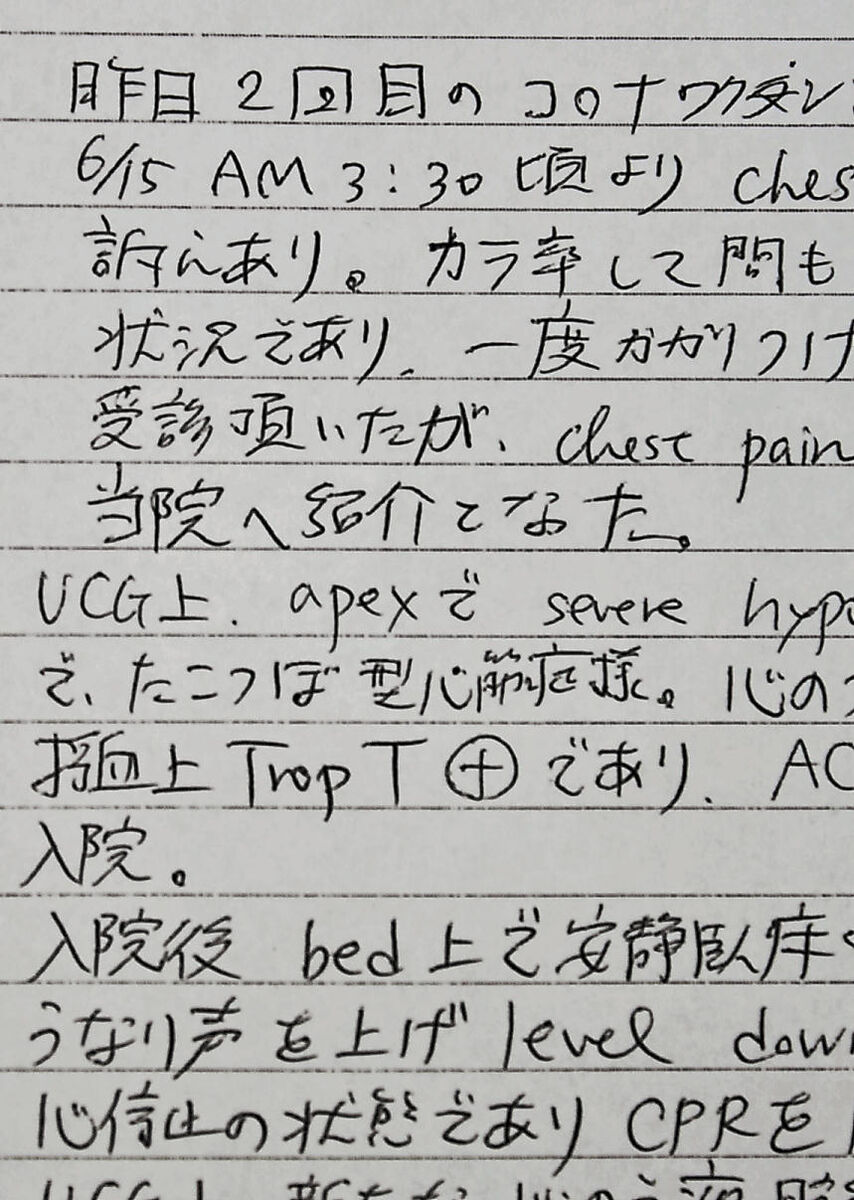 昨日2回目のコロナワクチン
6/15 AM 3:30 頃より ches
訴えあり。カラ率して間も
状況であり、一度かかりつけ
受診頂いたが、chest pain
当院へ紹介となった。
UCG上、apexで severe hypo
で、たこつぼ型心筋症様。心の
採血上 Trop T ⊕ であり、AC
入院。
入院後 bed上で安静臥床
うなり声を上げ level down
心停止の状態であり CPRを
UCG上 新たな 心のう液